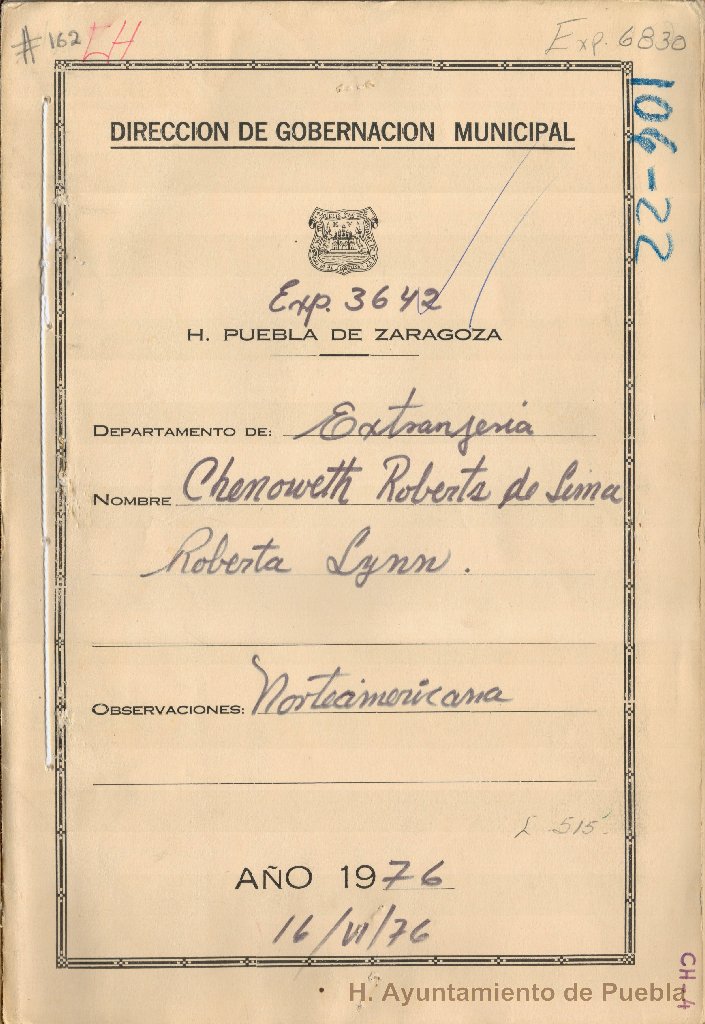 #162 CH
Exp. 6830
106-22
DIRECCION DE GOBERNACION MUNICIPAL
Exp. 3642
H. PUEBLA DE ZARAGOZA
DEPARTAMENTO DE: Extranjeria
NOMBRE Chenoweth Roberts de Lima
Roberta Lynn.
OBSERVACIONES: Norteamericana
L 515.
AÑO 1976
16/VI/76
CH-4
H. Ayuntamiento de Puebla